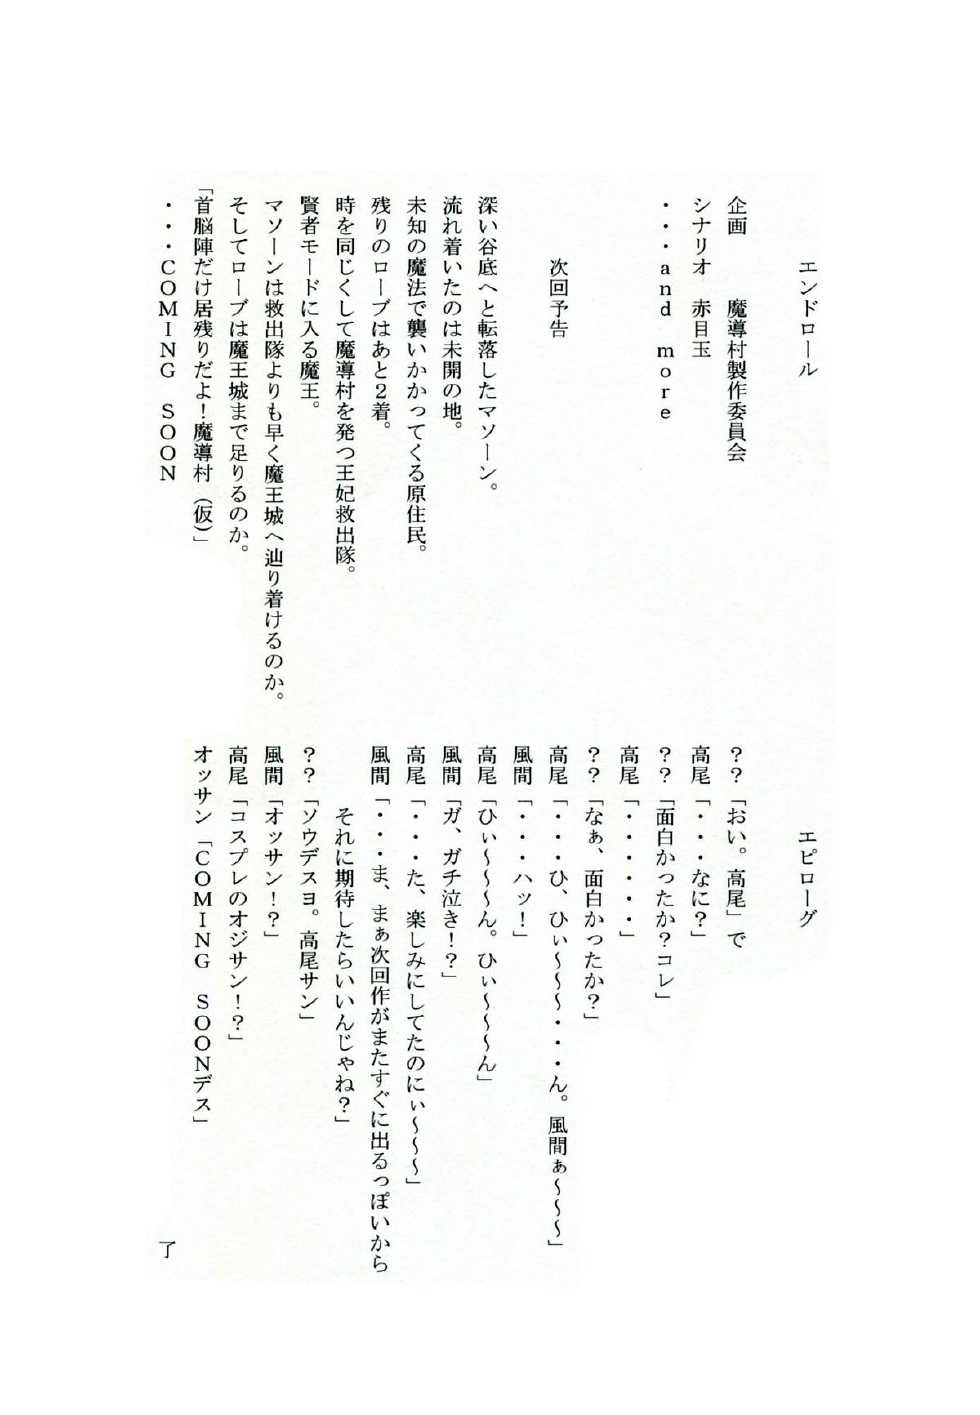 エンドロール
企画　　魔導村製作委員会
シナリオ　赤目玉
・・・ａｎｄ　ｍｏｒｅ
次回予告
深い谷底へと転落したマソーン。
流れ着いたのは未開の地。
未知の魔法で襲いかかってくる原住民。
残りのローブはあと２着。
時を同じくして魔導村を発つ王妃救出隊。
賢者モードに入る魔王。
マソーンは救出隊よりも早く魔王城へ辿り着けるのか。
そしてローブは魔王城まで足りるのか。
「首脳陣だけ居残りだよ！魔導村（仮）」
・・・ＣＯＭＩＮＧ　ＳＯＯＮ
エピローグ
？？「おい。高尾」で
高尾「・・・なに？」
？？「面白かったか？コレ」
高尾「・・・・・・」
？？「なぁ、面白かったか？」
高尾「・・・ひ、ひぃ～～～・・・ん。風間ぁ～～～」
風間「・・・ハッ！」
高尾「ひぃ～～～ん。ひぃ～～～ん」
風間「ガ、ガチ泣き！？」
高尾「・・・た、楽しみにしてたのにぃ～～～」
風間「・・・ま、まぁ次回作がまたすぐに出るっぽいから
それに期待したらいいんじゃね？」
？？「ソウデスヨ。高尾サン」
風間「オッサン！？」
高尾「コスプレのオジサン！？」
オッサン「ＣＯＭＩＮＧ　ＳＯＯＮデス」
了